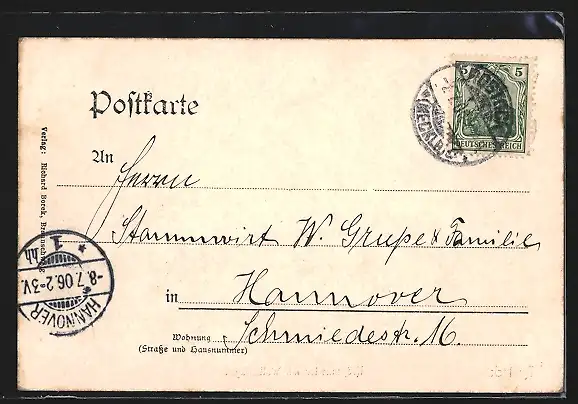 Postkarte
5 5
DEUTSCHES REICH
(MECKLB)
An Herrn
Stammwirt W. Grupe & Familie
in Hannover
Wohnung Schmiedestr. 16.
(Straße und Hausnummer)
Verlag: Richard Borek, Braunschweig
HANNOVER
-8.7.06.2-3V.
* 1 hh